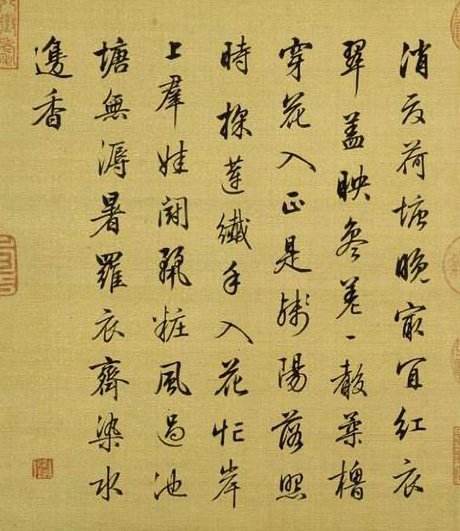 消夏荷塘晚最宜紅衣
翠蓋映參差一聲櫓
穿花入正是陽落照
時採蓮纖手入花忙岸
上羣娃鬪粧風過池
塘無溽暑羅衣齊染水
邊香